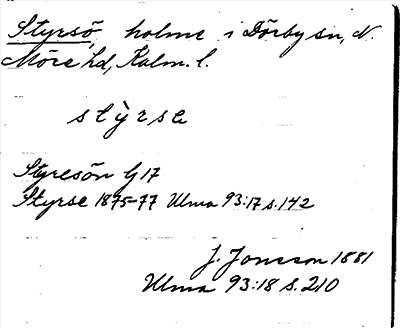 Styrsö, holme i Dörby sn, N.
Möre hd, Kalm. l.
stỳrse
Styresön G17
Styrse 1875-77 Ulma 93:17 s. 142
J. Jonsson 1881
Ulma 93:18 s. 210